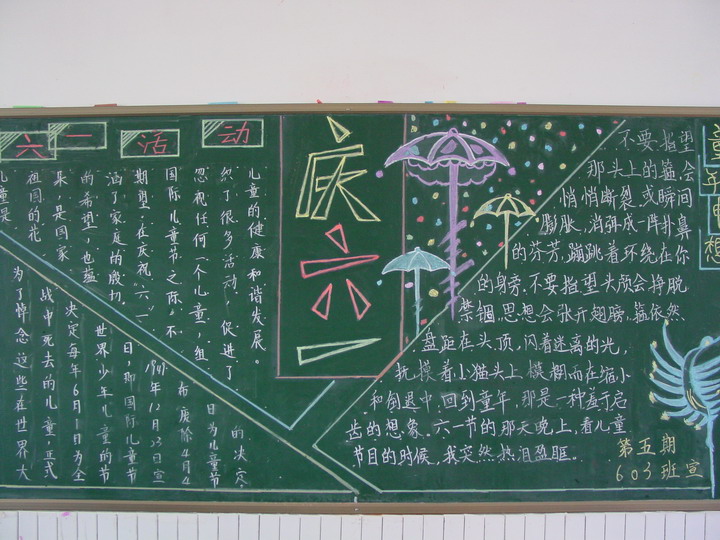 六一活动
儿童是
祖国的花
果，是国家
的希望，也蕴
涵了家庭的殷切
期望：在庆祝“六一”
国际儿童节之际，不
忽视任何一个儿童，组
织了很多活动，促进了
儿童的健康和谐发展。
为了悼念这些在世界大
战中死去的儿童，正式
决定每年6月1日为全
世界少年儿童的节
日，即国际儿童节
1949年12月23日宣
布废除4月4
日为儿童节
的决定
庆六一
童年想
不要指望
那头上的箍，会
悄悄断裂，或瞬间
膨胀，消弭成一阵扑鼻
的芬芳，蹦跳着环绕在你
的身旁。不要指望头颅会挣脱
禁锢，思想会张开翅膀，箍依然
盘踞在头顶，闪着迷离的光，
抚摸着小猫头上模糊而在缩小
和倒退中。回到童年，那是一种羞于启
齿的想象。六一节的那天晚上，看儿童
节目的时候，我突然热泪盈眶。
第五期
603班宣